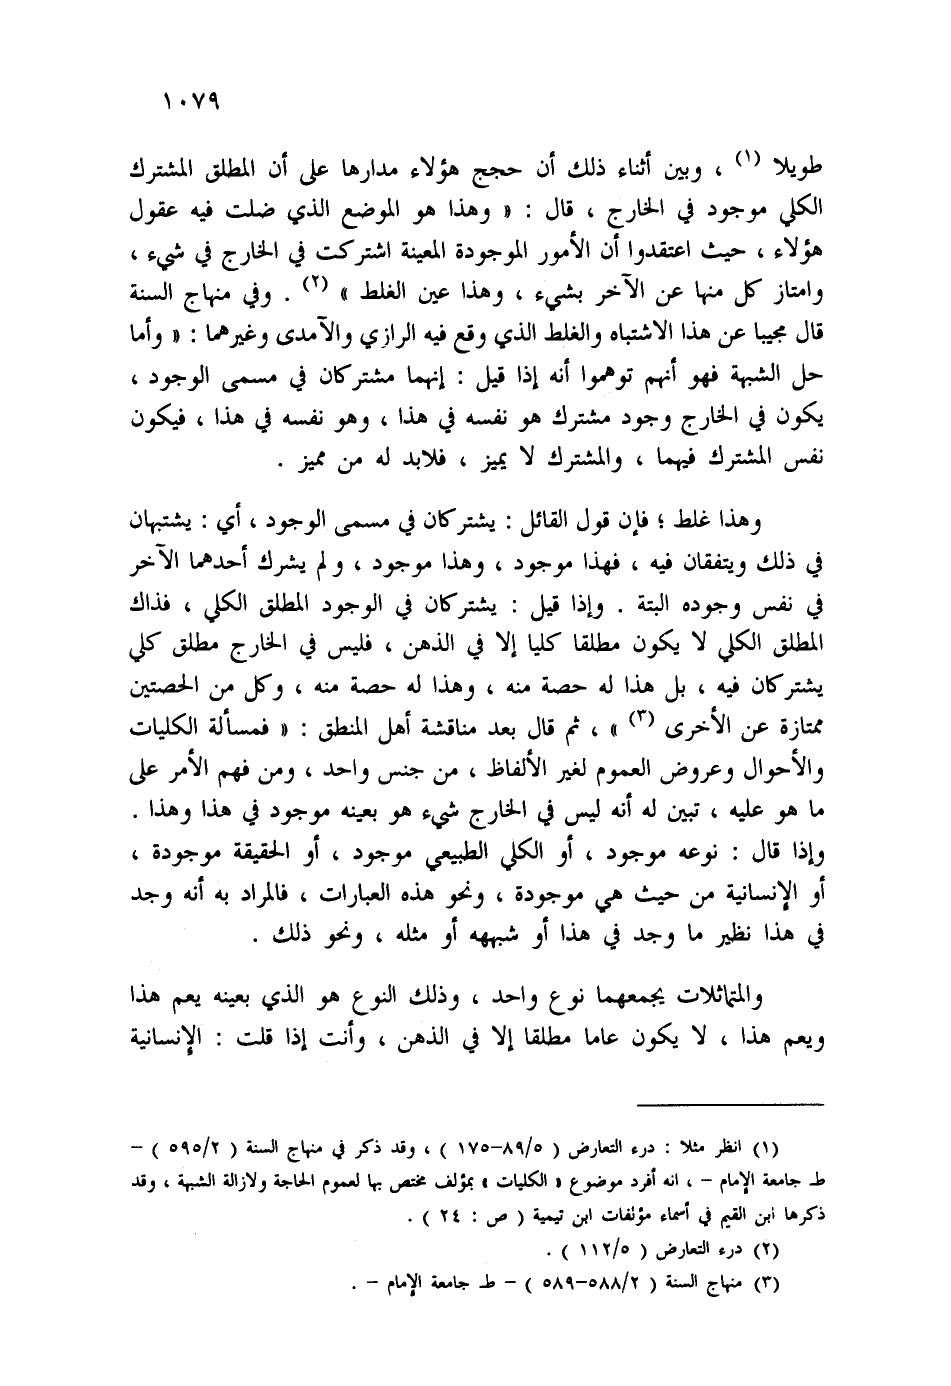 ١٠٧٩
طويلا (١) ، وبين أثناء ذلك أن حجج هؤلاء مدارها على أن المطلق المشترك
الكلي موجود في الخارج ، قال : « وهذا هو الموضع الذي ضلت فيه عقول
هؤلاء ، حيث اعتقدوا أن الأمور الموجودة المعينة اشتركت في الخارج في شيء ،
وامتاز كل منها عن الآخر بشيء ، وهذا عين الغلط » (٢) . وفي منهاج السنة
قال مجيبا عن هذا الاشتباه والغلط الذي وقع فيه الرازي والآمدى وغيرهما : « وأما
حل الشبهة فهو أنهم توهموا أنه إذا قيل : إنهما مشتركان في مسمى الوجود ،
يكون في الخارج وجود مشترك هو نفسه في هذا ، وهو نفسه في هذا ، فيكون
نفس المشترك فيهما ، والمشترك لا يميز ، فلابد له من مميز .
وهذا غلط ؛ فإن قول القائل : يشتركان في مسمى الوجود ، أي : يشتبهان
في ذلك ويتفقان فيه ، فهذا موجود ، وهذا موجود ، ولم يشرك أحدهما الآخر
في نفس وجوده البتة . وإذا قيل : يشتركان في الوجود المطلق الكلي ، فذاك
المطلق الكلي لا يكون مطلقا كليا إلا في الذهن ، فليس في الخارج مطلق كلي
يشتركان فيه ، بل هذا له حصة منه ، وهذا له حصة منه ، وكل من الحصتين
ممتازة عن الأخرى (٣) » ، ثم قال بعد مناقشة أهل المنطق : « فمسألة الكليات
والأحوال وعروض العموم لغير الألفاظ ، من جنس واحد ، ومن فهم الأمر على
ما هو عليه ، تبين له أنه ليس في الخارج شيء هو بعينه موجود في هذا وهذا .
وإذا قال : نوعه موجود ، أو الكلي الطبيعي موجود ، أو الحقيقة موجودة ،
أو الإنسانية من حيث هي موجودة ، ونحو هذه العبارات ، فالمراد به أنه وجد
في هذا نظير ما وجد في هذا أو شبهه أو مثله ، ونحو ذلك .
والمتماثلات يجمعهما نوع واحد ، وذلك النوع هو الذي بعينه يعم هذا
ويعم هذا ، لا يكون عاما مطلقا إلا في الذهن ، وأنت إذا قلت : الإنسانية
(١) انظر مثلا : درء التعارض ( ٨٩/٥–١٧٥ ) ، وقد ذكر في منهاج السنة ( ٥٩٥/٢ ) –
ط جامعة الإمام – ، انه أفرد موضوع « الكليات » بمؤلف مختص بها لعموم الحاجة ولازالة الشبهة ، وقد
ذكرها ابن القيم في أسماء مؤلفات ابن تيمية ( ص : ٢٤ ) .
(٢) درء التعارض ( ١١٢/٥ ) .
(٣) منهاج السنة ( ٥٨٨/٢–٥٨٩ ) – ط جامعة الإمام – .